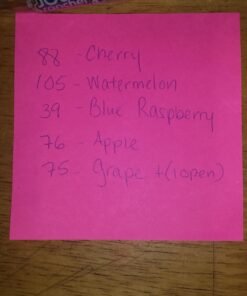 88 - Cherry
105 - Watermelon
39 - Blue Raspberry
76 - Apple
75 - Grape +(1open)